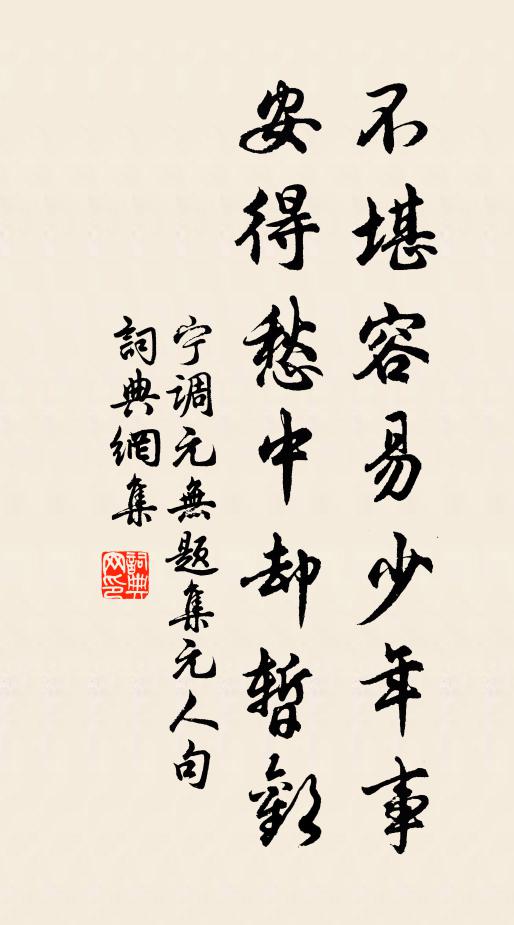 不堪容易少年事
安得愁中却暫歡
宁調元無题集元人句
詞典網集
詞典网印